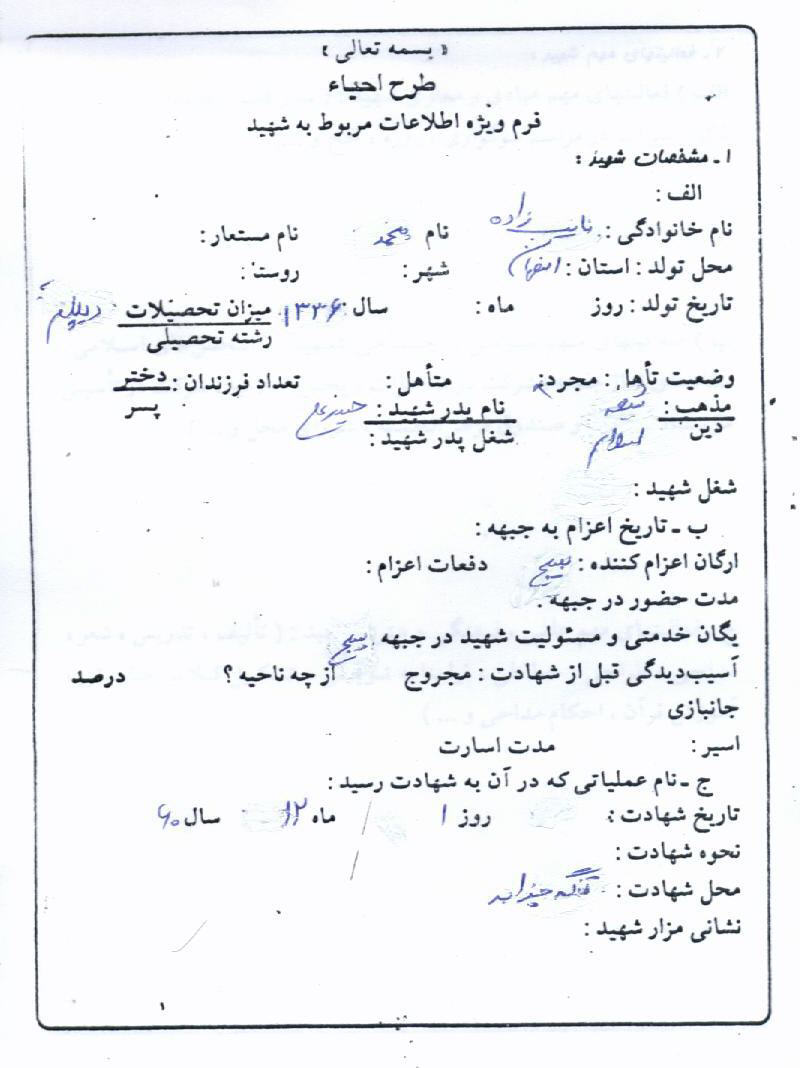 « بسمه تعالی »
طرح احیاء
فرم ویژه اطلاعات مربوط به شهید
۱ ـ مشخصات شهید :
الف :
نام خانوادگی : نایب زاده نام محمد نام مستعار :
محل تولد : استان : اصفهان شهر : روستا :
تاریخ تولد : روز ماه : سال : ۱۳۳۶ میزان تحصیلات دیپلم
رشته تحصیلی
وضعیت تأهل : مجرد : متأهل : تعداد فرزندان : دختر
پسر
مذهب : شیعه نام پدر شهید : حسینعلی
دین اسلام شغل پدر شهید :
شغل شهید :
ب ـ تاریخ اعزام به جبهه :
ارگان اعزام کننده : بسیج دفعات اعزام :
مدت حضور در جبهه :
یگان خدمتی و مسئولیت شهید در جبهه : بسیج
آسیب‌دیدگی قبل از شهادت : مجروح از چه ناحیه ؟ درصد
جانبازی
اسیر : مدت اسارت
ج ـ نام عملیاتی که در آن به شهادت رسید :
تاریخ شهادت : روز ۱ ماه ۱۲ سال ۶۰
نحوه شهادت :
محل شهادت : تنگه چزابه
نشانی مزار شهید :
۱